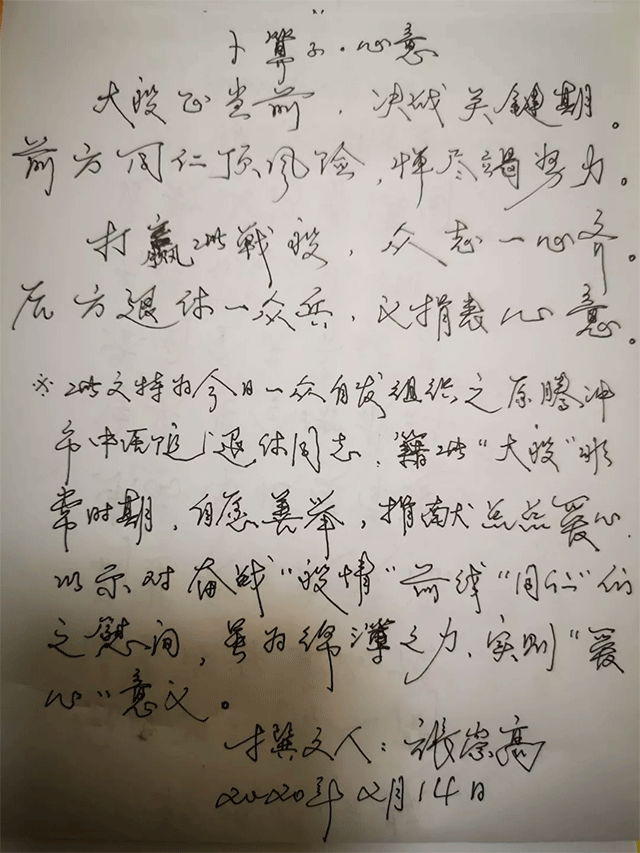 卜算子·心意
大疫正当前，决战关键期。
前方同仁顶风险，惮尽竭努力。
打赢此戦疫，众志一心齐。
后方退休一众兵，义捐表心意。
※此文特为今日一众自发组织之原腾冲
市中医院退休同志，籍此“大疫”非
常时期，自愿善举，捐献点点爱心
以示对奋战“疫情”前线“同仁”们
之慰问，虽为绵薄之力、实则“爱
心”意义。
撰文人：张崇高
2020年2月14日